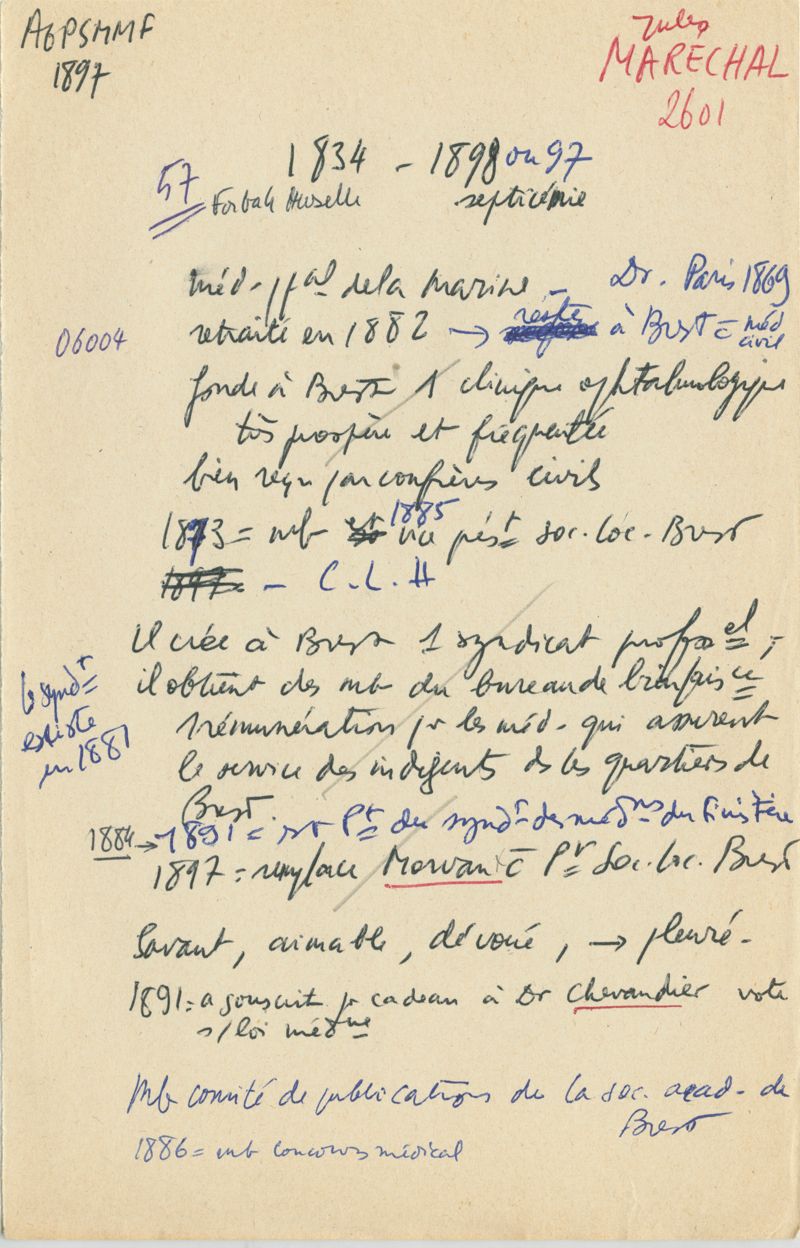 AGPSMMF
1897
Jules
MARECHAL
2601
1834 - 1898 ou 97
57
Forbak Moselle septicémie
méd. ppal de la Marine - Dr. Paris 1869
06004
retraité en 1882 → reste à Brest = méd civil
fonde à Brest 1 clinique ophtalmologique
très prospère et fréquentée
bien reçu par confrères civils
1873 = mb et 1885 vice prést soc. loc. Brest
1897 - C. L. H
Il crée à Brest 1 syndicat profess el ;
il obtient des mb du bureau de bienfaisce
1 rémunération pr les méd. qui assurent
le service des indigents ds les quartiers de
Brest.
le syndt
existe
en 1881
1884 → 1891 = est Pt du syndt des médns du Finistère
1897 = remplace Morvan c Pr Soc. loc. Brest
Savant, aimable, dévoué, → pleuré.
1891 = a souscrit pr cadeau à Dr Chevandier vote
s/loi médne
Mb comité de publications de la soc. acad. de
Brest
1886 = mb concours médical